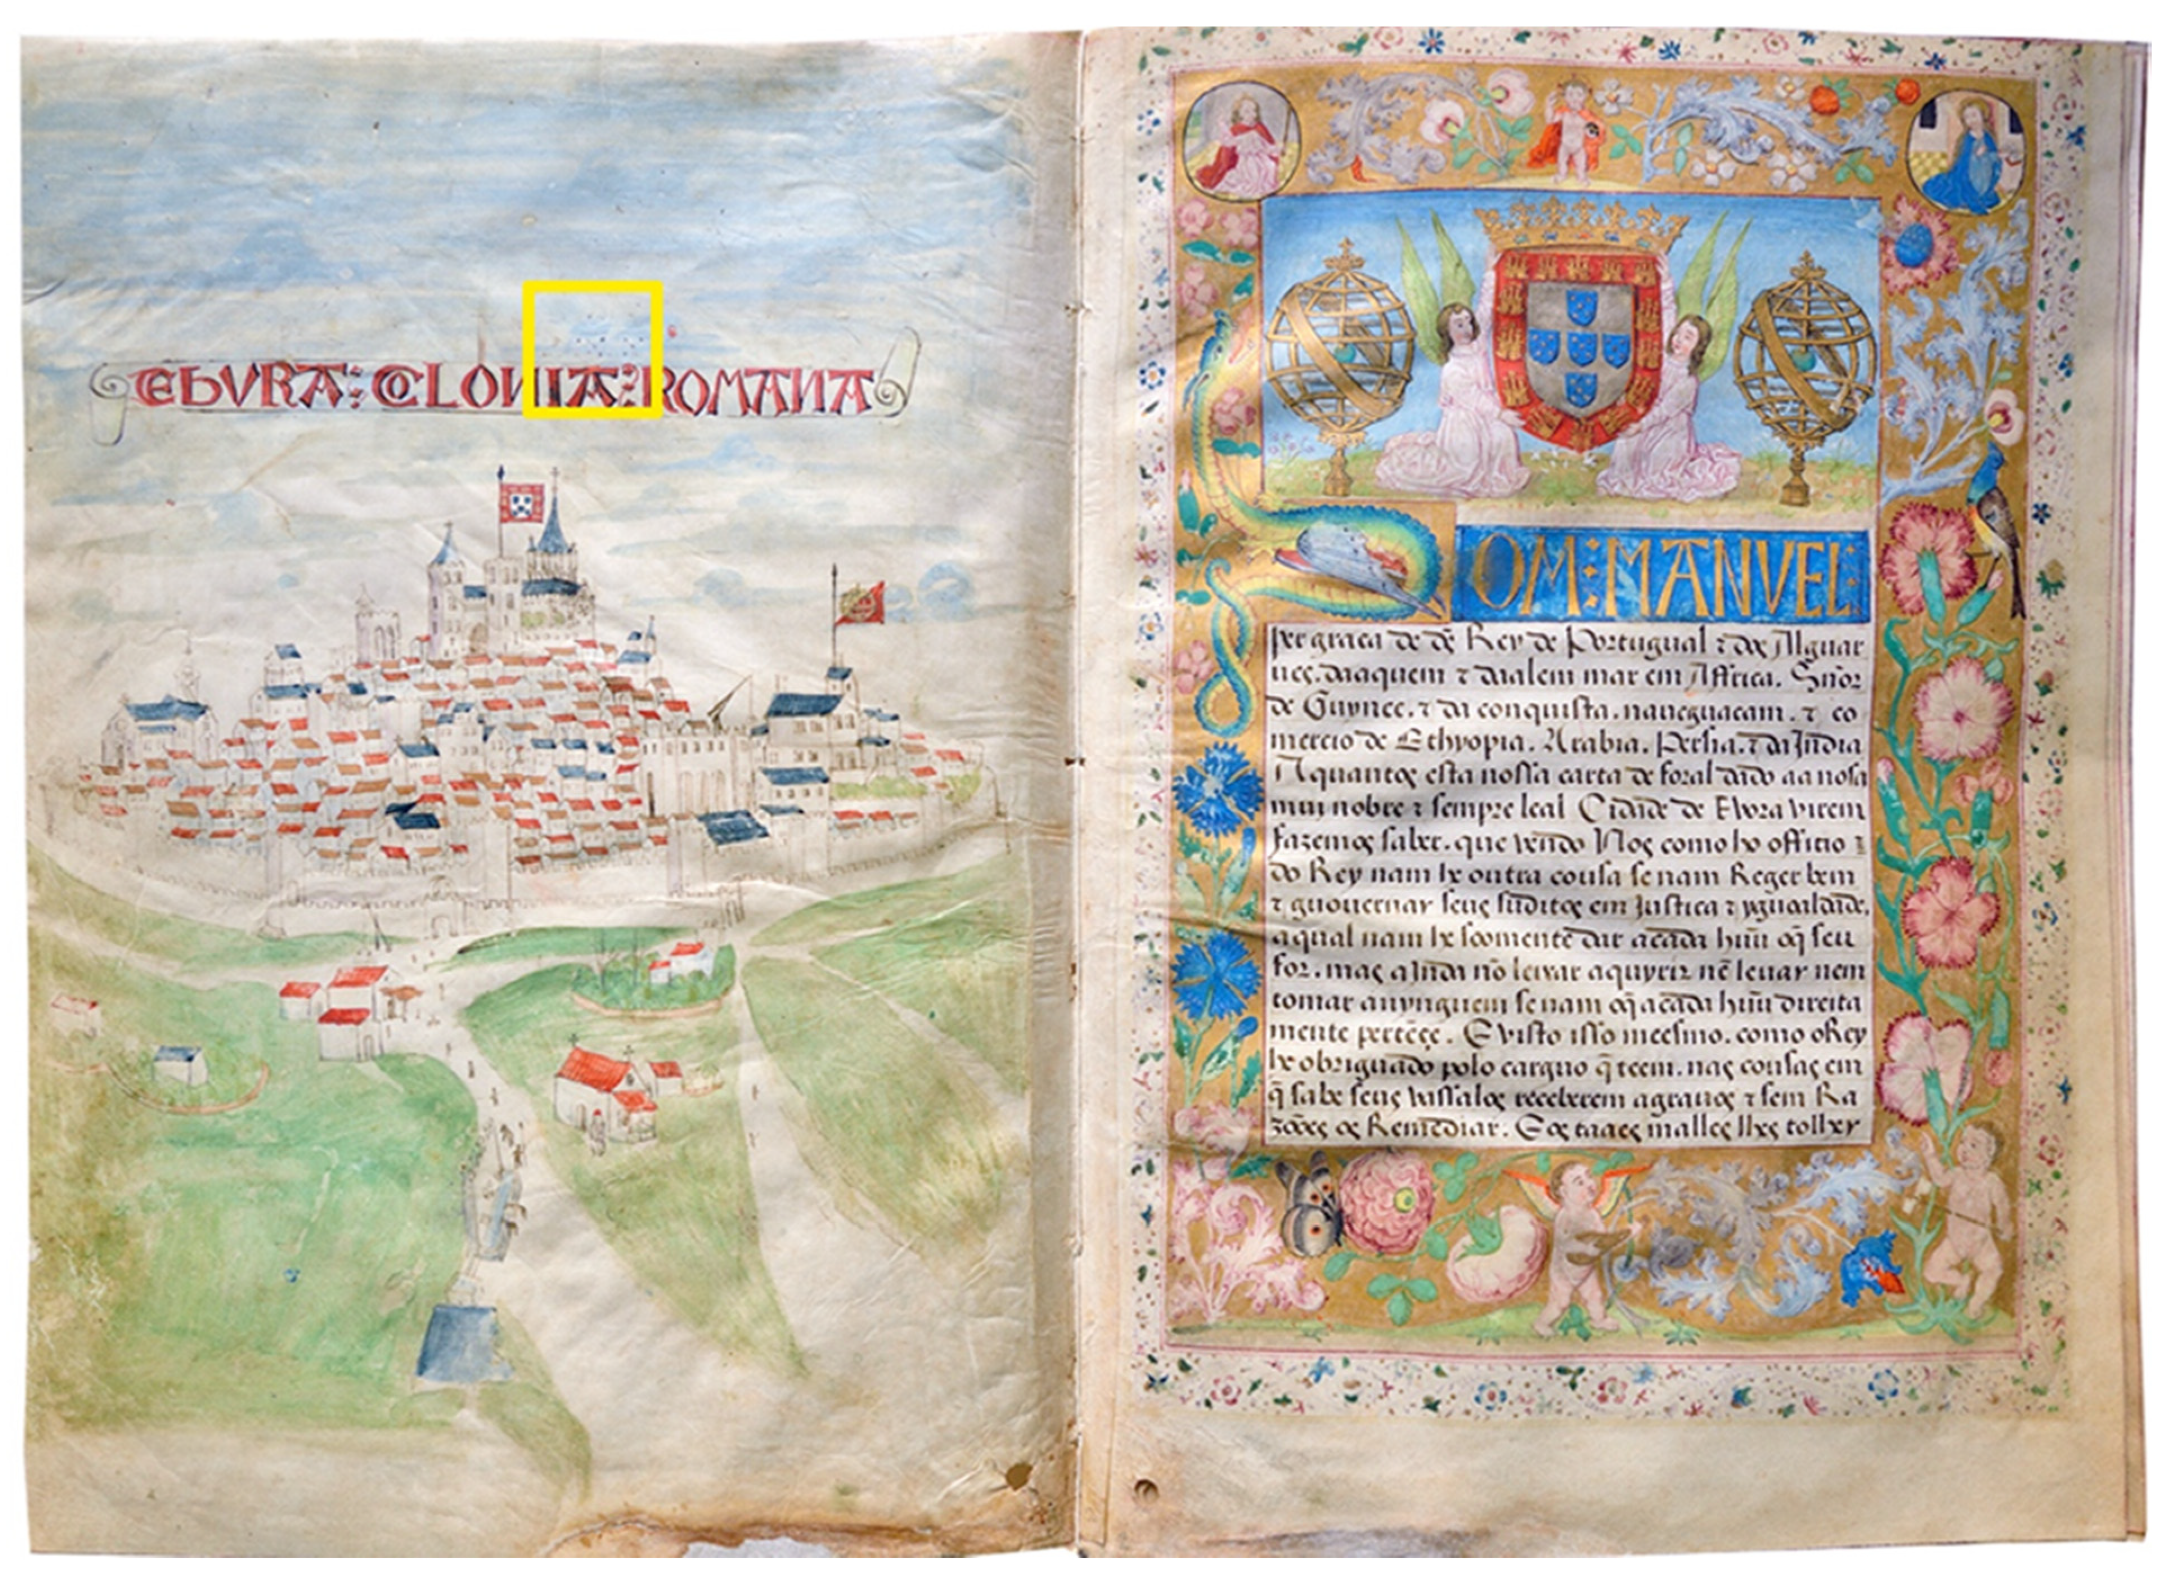 EBVRA: COLONIA: ROMANA
OM: MANVEL:
per graca de ds̃ Rey de Portugual ⁊ dos Alguar
ues. daaquem ⁊ daalem mar em Affrica. Sñor
de Guynee. ⁊ da conquista. naueguacam. ⁊ co
mercio de Ethyopia. Arabia. Persia. ⁊ da India
A quantos esta nossa carta de foral dado aa nosa
muy nobre ⁊ sempre leal Cidade de Evora virem
fazemos saber. que vendo Nos como ho officio
do Rey nam he outra cousa se nam Reger bem
⁊ guouernar seus suditos em Justica ⁊ ygualdade,
aqual nam he soomente dar acada huũ oq̃ seu
for. mas ajnda nõ leixar aquyrir nẽ leuar nem
tomar anynguem se nam oq̃ acada huũ direita
mente pertẽçe. E visto isso meesmo. como oRey
he obriguado polo carguo q̃ teem. nas cousas em
q̃ sabe seus vassalos receberem agrauos ⁊ sem Ra
zões os Remediar. E os taaes malles lhes tolher